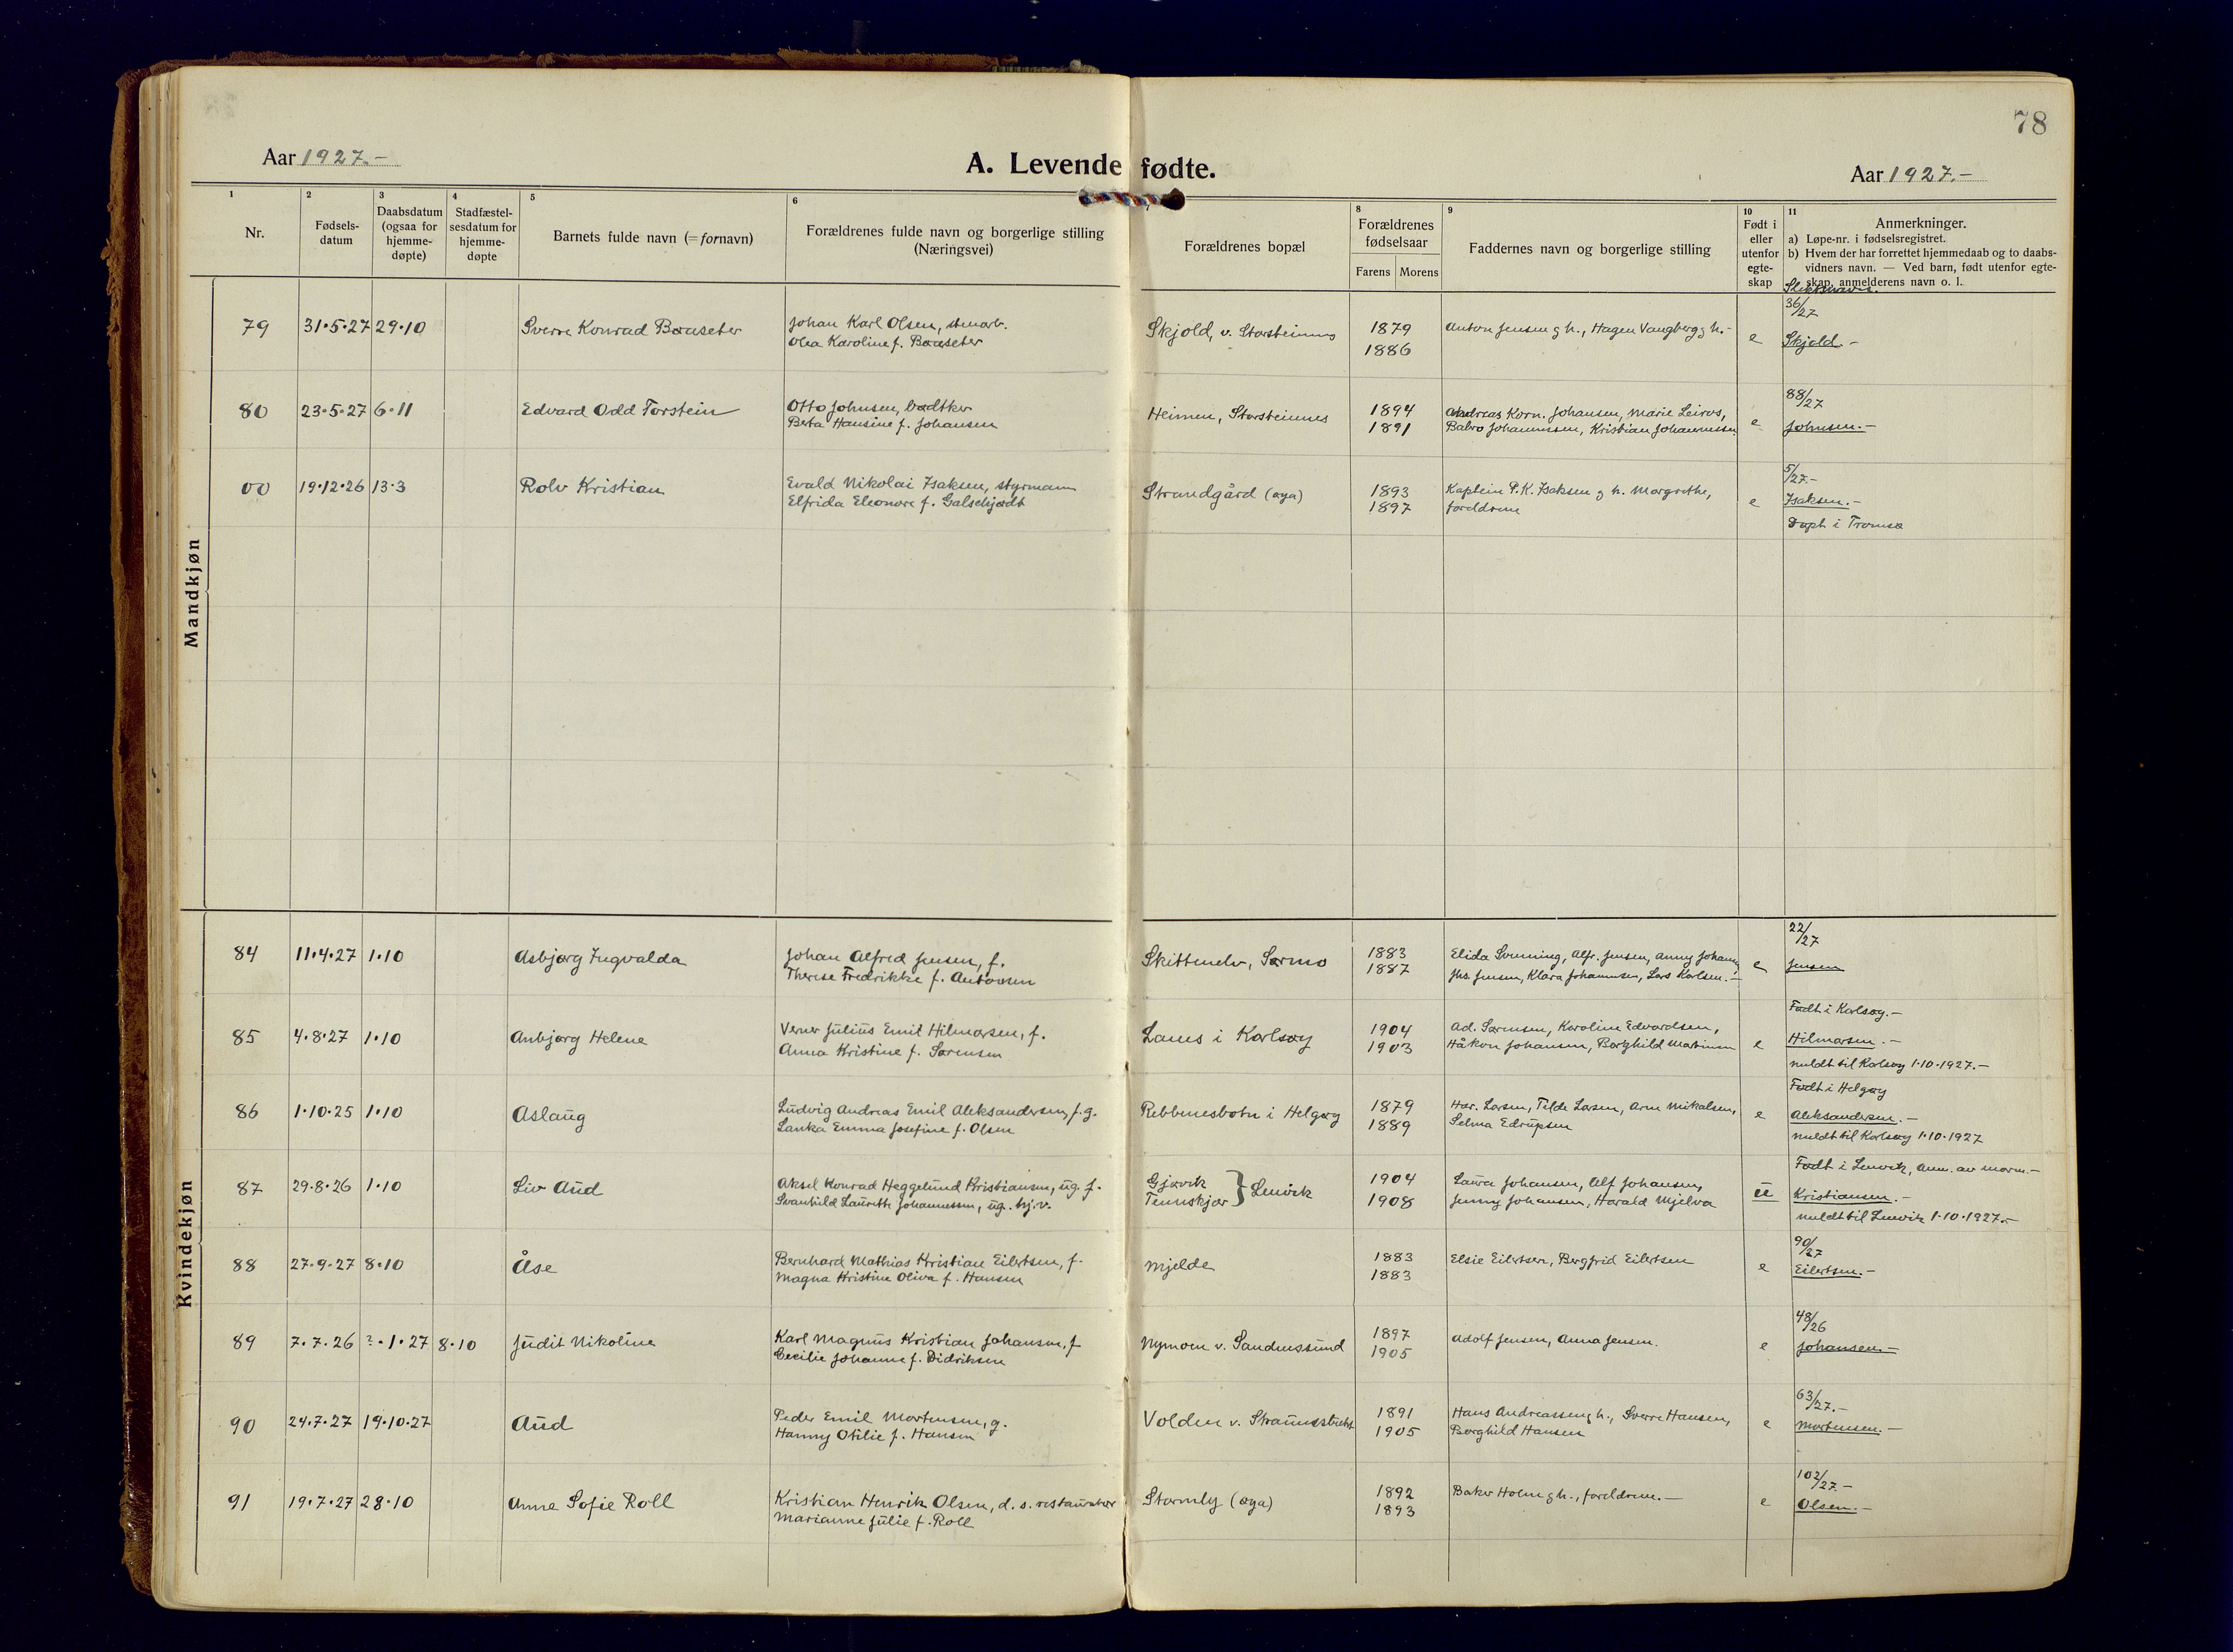 78
Aar 1927.-
A. Levende fødte.
Aar 1927.-
1 2 3 4 5 6 7 8 9 10 11
Nr.
Fødsels-
datum
Daabsdatum
(ogsaa for
hjemme-
døpte)
Stadfæstel-
sesdatum for
hjemme-
døpte
Barnets fulde navn (= fornavn)
Forældrenes fulde navn og borgerlige stilling
(Næringsvei)
Forældrenes bopæl
Forældrenes
fødselsaar
Farens Morens
Faddernes navn og borgerlige stilling
Født i
eller
utenfor
egte-
skap
Anmerkninger.
a) Løpe-nr. i fødselsregistret.
b) Hvem der har forrettet hjemmedaab og to daabs-
vidners navn. — Ved barn, født utenfor egte-
skap, anmelderens navn o. l.
Mandkjøn
Slektsnavn.
36/27
79 31.5.27 29.10 Sverre Konrad Baaseter Johan Karl Olsen, stenarb. Skjold, v. Storsteinnes 1879 Anton Jensen g h., Hagen Vangberg g h.- e Skjold.-
Olea Karoline f. Baaseter 1886
88/27
80 23.5.27 6.11 Edvard Odd Torstein Otto Johnsen, bødtker Heimen, Storsteinnes 1894 Andreas Korn. Johansen, Marie Leiros, e Johnsen.-
Berta Hansine f. Johansen 1891 Balro Johannessen, Kristian Johannessen
5/27.-
00 19.12.26 13.3 Rolv Kristian Evald Nikolai Isaksen, styrmann Strandgård (øya) 1893 Kaptein P. K. Isaksen g h. Margrethe, e Isaksen.-
Elfrida Eleonore f. Galschjødt 1897 foreldrene
Døpt i Tromsø
Kvindekjøn
22/27
84 11.4.27 1.10 Asbjørg Ingvalda Johan Alfred Jensen, f. Skittenelv, Sørmo 1883 Elida Svenning, Alfr. Jensen, Anny Johann, e Jensen
Therese Fredrikke f. Antonsen 1887 Jhs. Jensen, Klara Johannesen, Lars Karlsen.-
Født i Karlsøy.-
85 4.8.27 1.10 Anbjørg Helene Verner Julius Emil Hilmarsen, f. Lanes i Karlsøy 1904 Ad. Sørensen, Karoline Edvardsen, e Hilmarsen.-
Anna Kristine f. Sørensen 1903 Håkon Johansen, Borghild Martinsen
meldt til Karlsøy 1.10.1927.-
Født i Helgøy
86 1.10.25 1.10 Aslaug Ludvig Andreas Emil Aleksandersen, f.g. Rebbenesbotn i Helgøy 1879 Har. Larsen, Tilda Larsen, Arne Mikalsen, e Aleksandersen.-
Lanka Emma Josefine f. Olsen 1889 Selma Edrupsen
meldt til Karlsøy 1.10.1927
Født i Lenvik, Anm. av morm.-
87 29.8.26 1.10 Liv Aud Aksel Konrad Heggelund Kristiansen, ug. f. Gjøvik } Lenvik 1904 Laura Johansen, Alf Johansen, u Kristiansen.-
Svanhild Laurette Johannessen, ug. hj.v. Tennskjær 1908 Jenny Johansen, Harald Mjelva
meldt til Lenvik 1.10.1927.-
90/27
88 27.9.27 8.10 Åse Bernhard Mathias Kristian Eilertsen, f. Mjelde 1883 Elsie Eilertsen, Bergfrid Eilertsen e Eilertsen.-
Magna Kristine Oliva f. Hansen 1883
48/26
89 7.7.26 ?.1.27 8.10 Judit Nikoline Karl Magnus Kristian Johansen, f Nymoen v. Sandnessund 1897 Adolf Jensen, Anna Jensen. e Johansen.-
Cecilie Johanne f. Didriksen 1905
63/27.-
90 24.7.27 19.10.27 Aud Peder Emil Mortensen, g. Volden v. Straumsbukt 1891 Hans Andreassen g h., Sverre Hansen, e Mortensen.-
Hanny Otilie f. Hansen 1905 Borghild Hansen
102/27.-
91 19.7.27 28.10 Anne Sofie Roll Kristian Henrik Olsen, d. s. restauratør Stormly (øya) 1892 Baker Holm g h., foreldrene.- e Olsen.-
Marianne Julie f. Roll 1893